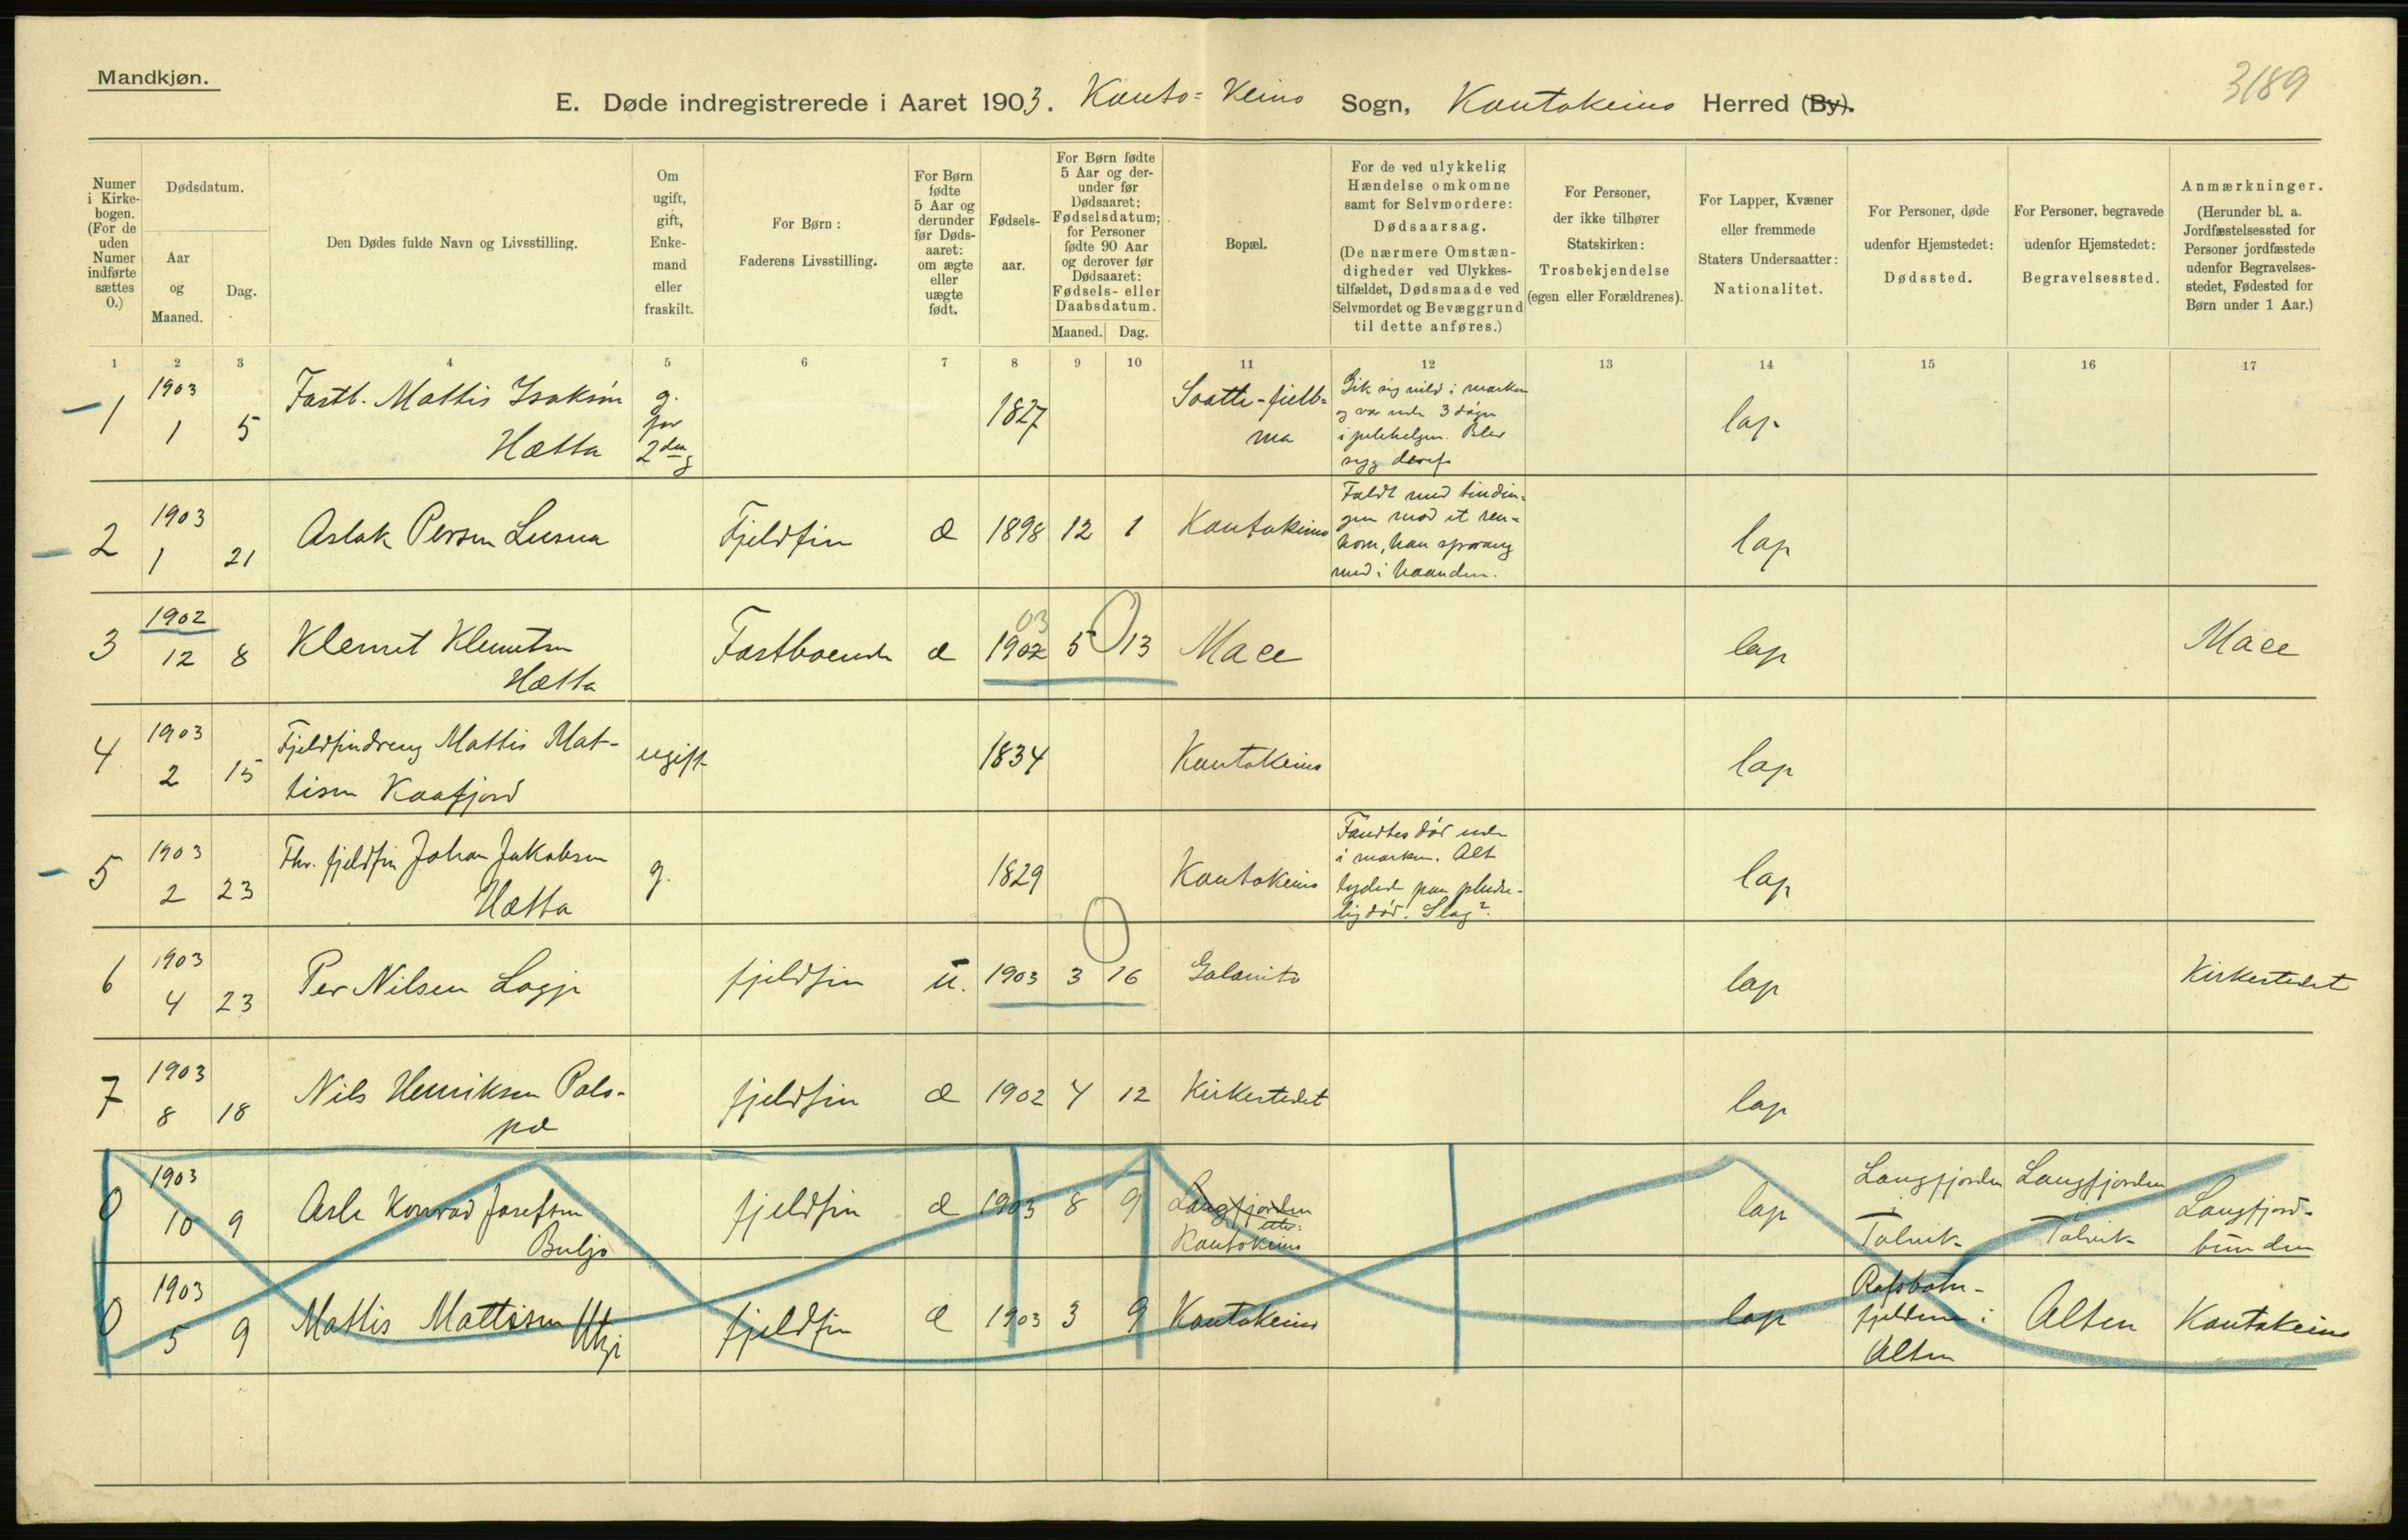 Mandkjøn.
3189
E. Døde indregistrerede i Aaret 1903. Kauto=Keino Sogn, Kautokeino Herred (By).
Numer i Kirkebogen. (For de uden Numer indførte sættes 0.)
Dødsdatum.
Aar og Maaned.
Dag.
Den Dødes fulde Navn og Livsstilling.
Om ugift, gift, Enkemand eller fraskilt.
For Børn: Faderens Livsstilling.
For Børn fødte 5 Aar og derunder før Dødsaaret: om ægte eller uægte født.
Fødselsaar.
For Børn fødte 5 Aar og derunder før Dødsaaret: Fødselsdatum; for Personer fødte 90 Aar og derover før Dødsaaret: Fødsels- eller Daabsdatum.
Maaned. Dag.
Bopæl.
For de ved ulykkelig Hændelse omkomne samt for Selvmordere: Dødsaarsag. (De nærmere Omstændigheder ved Ulykkestilfældet, Dødsmaade ved Selvmordet og Bevæggrund til dette anføres.)
For Personer, der ikke tilhører Statskirken: Trosbekjendelse (egen eller Forældrenes).
For Lapper, Kvæner eller fremmede Staters Undersaatter: Nationalitet.
For Personer, døde udenfor Hjemstedet: Dødssted.
For Personer, begravede udenfor Hjemstedet: Begravelsessted.
Anmærkninger. (Herunder bl. a. Jordfæstelsessted for Personer jordfæstede udenfor Begravelsesstedet, Fødested for Børn under 1 Aar.)
1 2 3 4 5 6 7 8 9 10 11 12 13 14 15 16 17
1 1903 1 5 Fastb. Mattis Isaksen Hætta g. for 2den g 1827 Soatte-fielbma Gik sig vild i marken og var ude 3 døgn i julehelgen. Blev syg deraf. lap
2 1903 1 21 Aslak Persen Lusua Fjeldfin æ 1898 12 1 Kautokeino Faldt med tindingen mod et renhorn, han sprang med i haanden. lap
3 1902 12 8 Klemet Klemetsen Hætta Fastboende æ 1902 03 5 13 Mace lap Mace
4 1903 2 15 Fjeldfindreng Mattis Mattisen Kaafjord ugift 1834 Kautokeino lap
5 1903 2 23 Fhv. fjeldfin Johan Jakobsen Hætta g. 1829 Kautokeino Fandtes død ude i marken. Alt tydede paa pludselig død. Slag? lap
6 1903 4 23 Per Nilsen Logje fjeldfin u. 1903 3 16 Galanito lap Kirkestedet
7 1903 8 18 Nils Henriksen Palopæ fjeldfin æ 1902 4 12 Kirkestedet lap
0 1903 10 9 Asle Konrad Josefsen Buljo fjeldfin æ 1903 8 9 Langfjorden Kautokeino lap Langfjorden i Talvik Langfjorden i Talvik Langfjordbunden
0 1903 5 9 Mattis Mattisen Utsi fjeldfin æ 1903 3 9 Kautokeino lap Rafsbotnfjeldene i Alten Alten Kautokeino